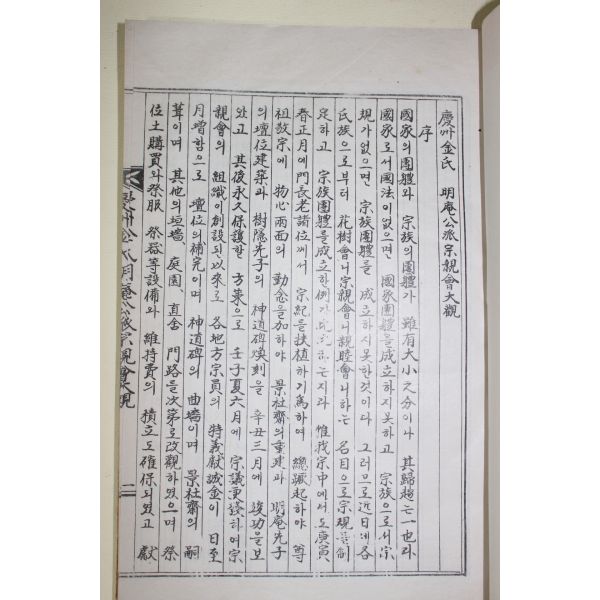 慶州金氏 明庵公派宗親會大觀
序
國家의 團體와 宗族의 團體가 雖有大小之分이나 其歸趨는 一也라
國家로서 國法이 없으면 國家團體를 成立하지 못하고 宗族으로서 宗
規가 없으면 宗族團體를 成立하지 못한 것이다 그러므로 近日에 各
氏族으로부터 花樹會니 宗親會니 親睦會니 하는 名目으로 宗規를 制
定하고 宗族團體를 成立한 例가 하는지라 惟我宗中에서도 庚寅
春正月에 門長老諸位께서 宗紀를 扶植하기 爲하여 總蹶起하야 尊
祖敬宗에 物心兩面의 勤念을 加하야 景杜齋의 重建과 明庵先子
의 壇位建築과 樹隱先子의 神道碑煥刻을 辛丑三月에 竣功을 보
았고 其後永久保護할 方策으로 壬子夏六月에 宗議更發하여 宗
親會의 組織이 創設된 以來로 各地方宗員의 特義獻誠金이 日至
月增함으로 壇位의 補完이며 神道碑의 曲墻이며 景杜齋의 嗣
葺이며 其他의 垣墻 庭園 直舍 門路를 次第로 改觀하였으며 祭
位土購買와 祭服 祭器等設備와 維持費의 積立도 確保되였고 獻
慶州金氏明庵公派宗親會大觀 二